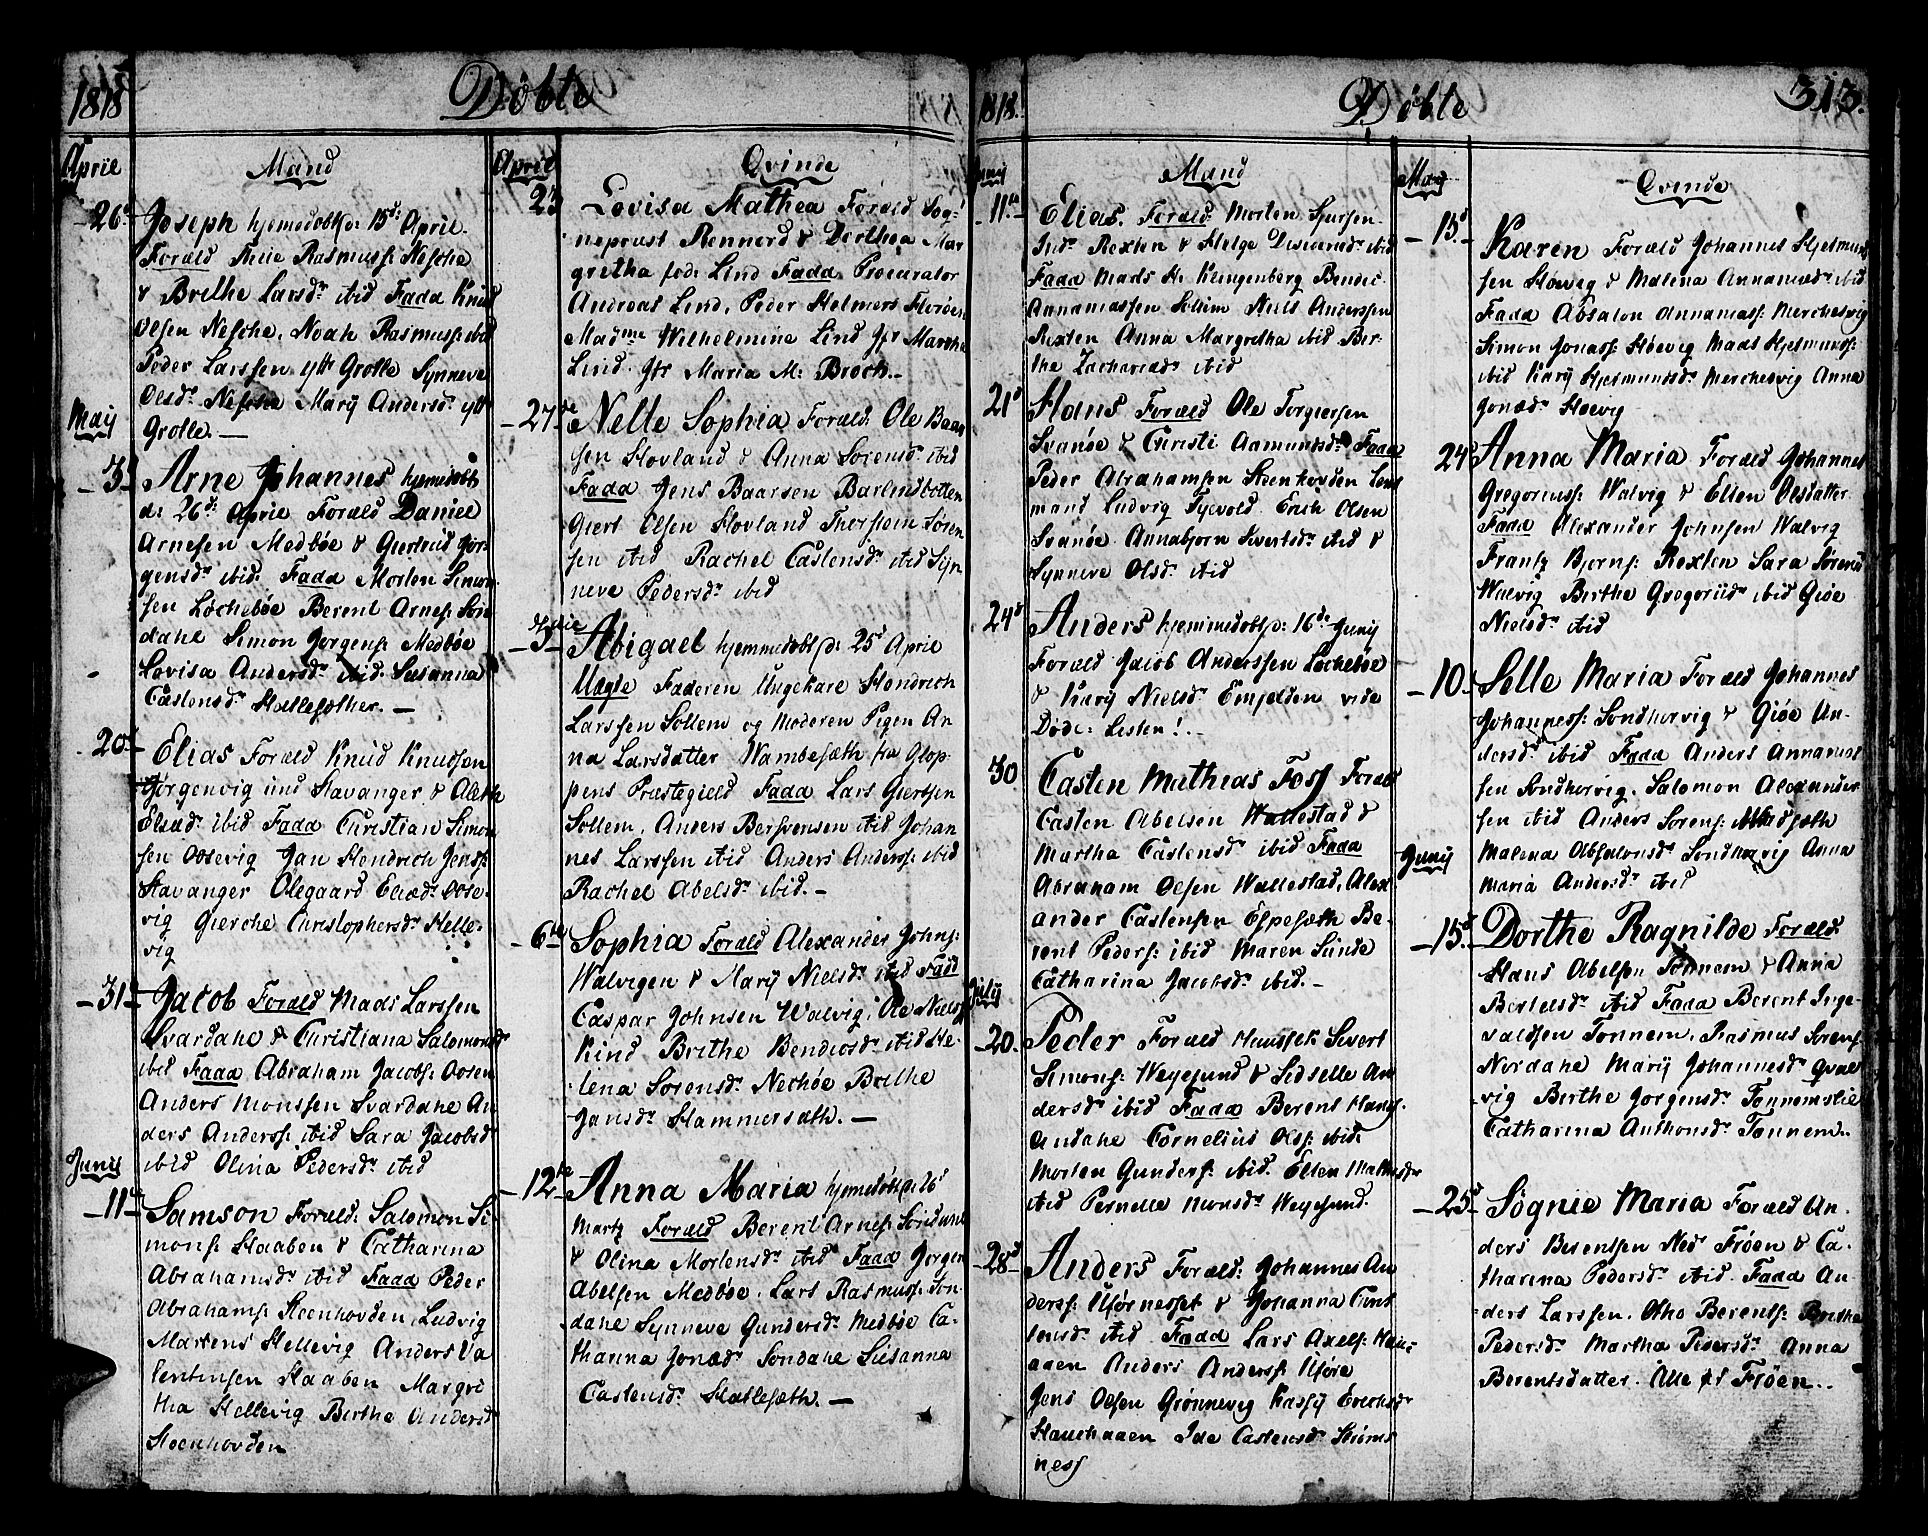 1818
Døbte
April
Mand
26d
Joseph hjemedøbt d: 15d: April.
Foræld Rasmuss: Nesche
& Brithe Larsdr ibid Fadd Knud
Olsen Nesche, Noah Rasmuss: ibid
Peder Larssen ytr Grolle Synneve
Olsdr Nesche Marÿ Andersdr ytr
Grolle. —
Maÿ
3d
Arne Johannes hjemedøbt
d: 26d: April Foræld Daniel
Arnesen Medbøe & Giertrud Jør-
gensdr ibid: Fadd Morten Simon
sen Løchebøe Berent Arnes: Søn
dahl Simon Jørgens: Medbøe
Lovisa Andersdr ibid. Susanna
Castensdr Hatlesæther. —
20d
Elias Foræld Knud Knudsen
Jørgenvig und Stavanger & Alethe
Eliædr ibid Fadd Christian Simon
sen Oosevig Jan Hendrich Jenss:
Stavanger Olegaard Eliædr Oose-
vig Gierche Christophersdr Helle-
vig
31d
Jacob Foræld Mads Larssen
Svardahl & Christiana Salomonsdr
ibid Fadd Abraham Jacobs: Oosen
Anders Monssen Svardahl An
ders Anderss: ibid Sara Jacobsdr
ibid Olina Pedersdr ibid
Junÿ
11te
Samson Foræld: Salomon Si-
mons: Staaben & Catharina
Abrahamsdr ibid Fadd Peder
Abrahams: Steenhovden, Ludvig
Martens Hellevig Anders Va
lentinsen Staaben Margre
tha Hellevig Birthe Andersdr
Steenhovden
April
Qvinde
23
Lovisa Mathea Foræld Sog-
neprust Rennord & Dorthea Mar
gretha fød: Lind Fadd Procurator
Andreas Lind, Peder Helmers Florøen
Madme Wilhelmine Lind Jfr Martha
Lind. Jfr Maria M: Broch.—
27de
Nelle Sophia Foræld: Ole Baar
sen Hovland & Anna Sørensdr ibid
Fadd Jens Baarsen Barlindbotten
Giert Olsen Hovland Thorstein Søren
sen ibid Rachel Castensdr ibid Syn
neve Pedersdr ibid
3
Abigael hjemmedøbt d: 25d April
Uægte Faderen Ungekarl Hendrich
Larssen Sollem og Moderen Pigen An
na Larsdatter Wambesæth fra Glop-
pens Præstegield Fadd Lars Giertsen
Sollem, Anders Bersvensen ibid Johan
nes Larssen ibid Anders Anderss: ibid
Rachel Abelsdr ibid. —
6te
Sophia Foræld Alexander Johns:
Walvigen & Marÿ Nielsdr ibid Fadd
Caspar Johnsen Walvig, Ole Niels:
Kind Brithe Bendixdr ibid He-
lena Sørensdr Nechøe Brithe
Jansdr Hammersæth. —
12te
Anna Maria hjemedøbt d: 26d
Martz Foræld Berent Arnes: Søndahl
& Olina Mortensdr ibid Fadd Jørgen
Abelsen Medbøe. Lars Rasmuss: Søn-
dahl Synneve Gundersdr Medbøe Ca-
tharina Jonædr Søndahl Susanna
Castensdr Hatlesæth. —
1818.
Døbte
313.
Junÿ
Mand
11te
Elias. Foræld: Morten Siursen
Ind. Rexten & Helge ibid
Fadd Mads H. Klingenberg Bendic
Annaniassen Sollim Niels Anderssen
Rexten Anna Margretha ibid Bir-
the Zachariædr ibid
21d
Hans Foræld Ole Torgiersen
Svanøe & Christi Aamundsdr Fadd
Peder Abrahamsen Steenhovden Lens
mand Ludvig Tyevold. Erich Olsen
Svanøe. Annabjørn Sivertsdr ibid &
Synneve Olsdr ibid
24d
Anders hjemmedøbt d: 16de Junÿ
Foræld Jacob Anderssen Løchebøe
& Karÿ Nielsdr Empelsen vide
Døde: Listen! —
30
Casten Mathias Foss Foræld
Casten Abelsen Wallestad &
Martha Castensdr ibid Fadd
Abraham Olsen Wallestad, Alex-
ander Castensen Espesæth Be-
rent Peders: ibid Maren Sunde
Catharina Jacobsdr ibid. —
Julÿ
20.
Peder Foræld Sivert
Simons: Weyesund & Sidselle An
dersdr ibid Fadd Berent Hans:
Andahl Cornelius Olss: ibid.
Morten Gunders: ibid. Ellen Mathiædr
ibid Pernelle Monsdr Weyesund.
28d
Anders Foræld: Johannes An
derss: Ufornesset & Johanna Cast
tensdr ibid Fadd Lars Axels: Hau-
aaen Anders Anderss: Uføre
Jens Olsen Grønnevig Kassÿ Erichsdr
Hauchaaen Ide Castensdr Strøms
ness
Maÿ
Qvinde
15d
Karen Foræld Johannes Hjelmund
sen Høevig & Malena Annaniædr ibid
Fadd Absalon Annanias: Merchesvig
Simon Jonass: Høevig Mads Hjelmunds:
ibid Karÿ Hjelmundsdr Merchesvig Anna
Jonædr Høevig
24
Anna Maria Foræld Johannes
Gregoriuss: Walvig & Ellen Olsdatter
Fadd Alexander Johnsen Walvig
Frantz Bjørns: Rexten Sara Sørensdr
Walvig Birthe Gregoriidr ibid Giøe
Nielsdr ibid
10.
Selle Maria Foræld Johannes
Johanness: Sondhorvig & Giøe An-
dersdr ibid Fadd Anders Annanias
sen Sondhorvig, Salomon Alexander
sen ibid Anders Sørens: Midsæth
Malena Absalonsdr Sondhorvig Anna
Maria Andersdr ibid
Junÿ
15d
Dorthe Ragnilde Foræld
Hans Abelsen Tonnem & Anna
Bertelsdr ibid Fadd Berent Inge-
valdsen Tonnem, Rasmus Sørens:
Nordahl Marÿ Johannesdr Qval
vig Birthe Jørgensdr Tonnemslie
Catharina Anthonsdr Tonnem.
25d
Søgnie Maria Foræld An-
ders Berentsen Ned Frøen & Ca-
tharina Pedersdr ibid. Fadd An-
ders Larssen, Otho Berents: Brithe
Pedersdr Martha Pedersdr Anna
Berentsdatter. Alle pt Frøen..